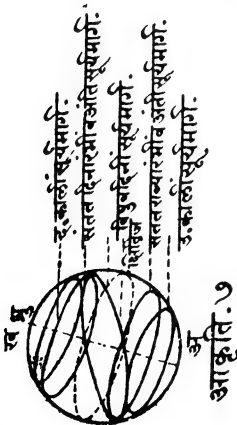 द. कालीं सूर्यमार्ग.
सतत दिनारंभीं व अंतीं सूर्यमार्ग.
विषुवदिनीं सूर्यमार्ग.
क्षितिज
सतत रात्र्यारंभीं व अंतीं सूर्यमार्ग.
उ. कालीं सूर्यमार्ग.
ख ध्रु
अ
आकृति. ७